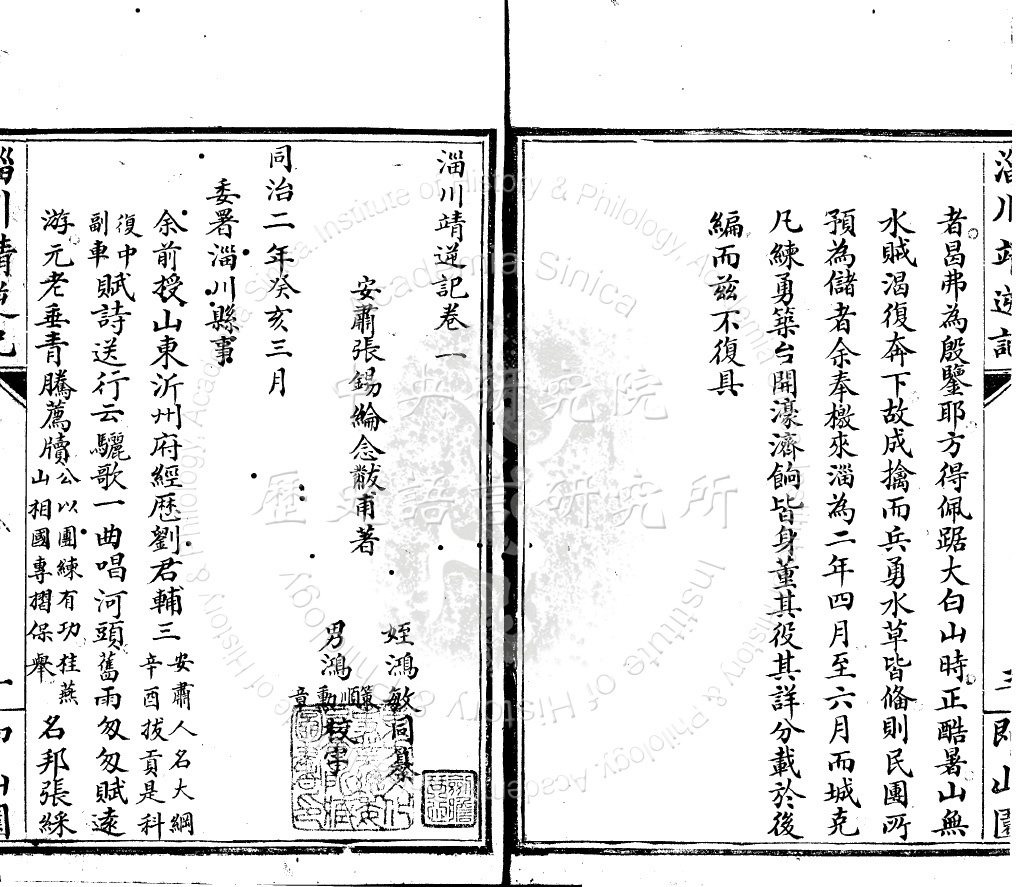 淄川靖逆記
三
即山園
者昌弗為殷鑒耶方得佩踞大白山時正酷暑山無
水賊渴復奔下故成擒而兵勇水草皆俻則民團所
預為儲者余奉檄來淄為二年四月至六月而城克
凡練勇築台開濠濟餉皆身董其役其詳分載於後
編而茲不復具
淄川靖逆記卷一
安肅張錫綸念黻甫著
姪鴻敏同纂
男鴻勳校字
同治二年癸亥三月
委署淄川縣事
余前授山東沂州府經歷劉君輔三安肅人名大綱辛酉拔貢是科
復中副車賦詩送行云驪歌一曲唱河頭舊雨匆匆賦遠
游元老垂青騰薦牘公以團練有功桂燕山相國專摺保舉名邦張綵
淄川靖逆記
一
Academia Sinica
Institute of History & Philology, Academia Sinica
中央研究院
歷史語言研究所